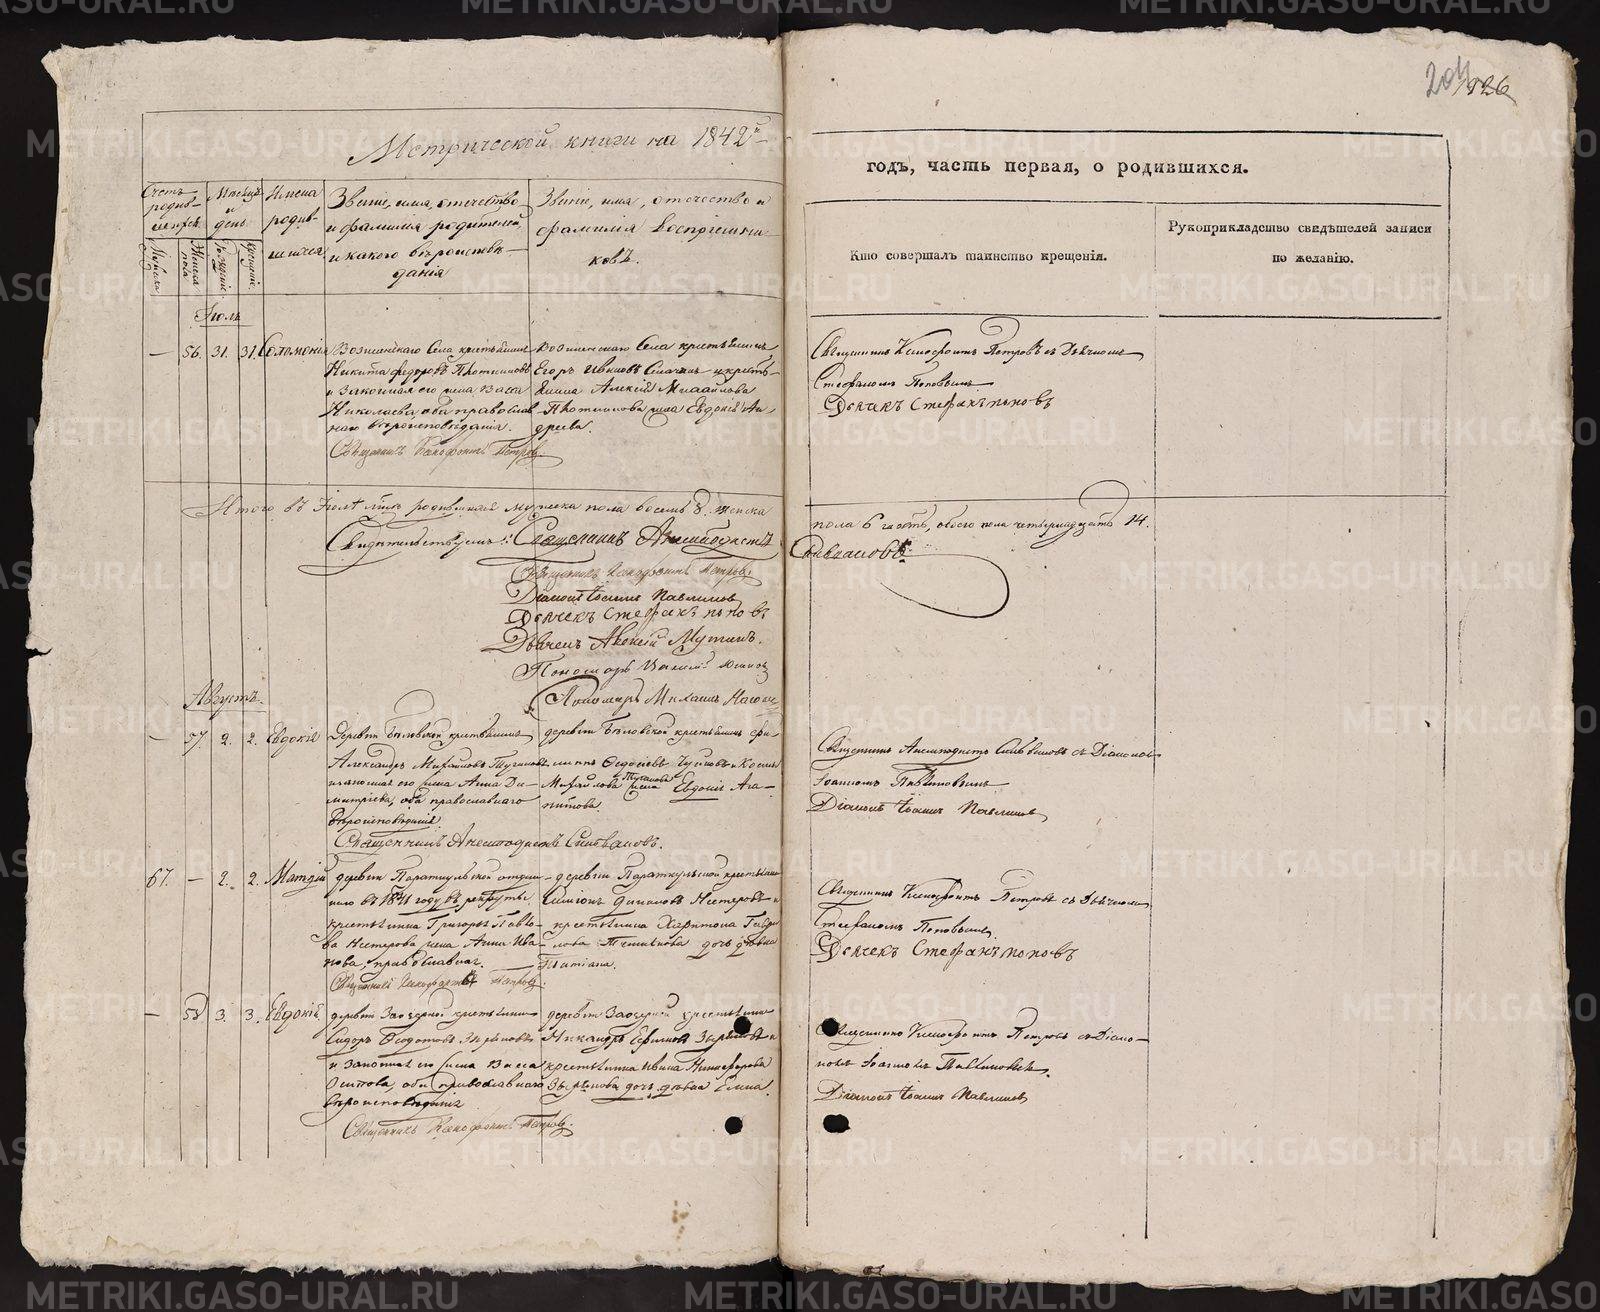 204 126
Метрической книги на 1842й
годъ, часть первая, о родившихся.
Счетъ родив-шихся
Мѣсяцъ и день
Имена родив-шихся
Званіе, имя, отечество и фамилія родителей, и какого вѣроисповѣ-данія
Званіе, имя, отечество и фамилія воспріемни-ковъ.
Кто совершалъ таинство крещенія.
Рукоприкладство свидѣтелей записи по желанію.
Мужеска
Женска пола
Рожденіе
Крещеніе
Іюль
— 56. 31. 31. Соломонія
Вознесенскаго Села крестьянинъ
Никита Федоровъ Плотниковъ
и Законная его жена Васса
Николаева, оба православ
наго вѣроисповѣданія.
Священникъ Ксенофонтъ Петровъ
Вознесенскаго Села крестьянинъ
Егоръ Ивановъ и кресть-
янина Алексѣя Михайлова
Плотникова жена Евдокія Ан-
дреева.
Священникъ Ксенофонтъ Петровъ съ Дьячкомъ
Стефаномъ Поповымъ
Дьячекъ Стефанъ Поповъ
Итого въ Іюлѣ родившихся мужеска пола восемь 8. женска
пола 6 шесть, обоего пола четырнадцать 14.
Свидѣтельствуемъ: Священникъ Анемподистъ
Сильвановъ
Священникъ Ксенофонтъ Петровъ
Діаконъ Іоаннъ Павлиновъ
Дьячекъ Стефанъ Поповъ
Дьячекъ Алексѣй Мутинъ.
Пономарь
Пономарь
Августъ
— 57. 2. 2. Евдокія
Деревни Бѣловской крестьянинъ
Александръ Михайловъ Тугановъ
и законная его жена Анна Ди-
митріева, оба православнаго
вѣроисповѣданія
Священникъ Анемподистъ Сильвановъ.
деревни Бѣловской крестьянинъ Фи-
липпъ Ѳедосѣевъ и Косьмы
Михайлова Туганова жена Евдокія Ага-
питова
Священникъ Анемподистъ Сильвановъ съ Діакономъ
Іоанномъ Павлиновымъ
Діаконъ Іоаннъ Павлиновъ
67. — 2. 2. Матѳій
деревни Параткульской отдан-
наго въ 1841 году въ рекруты
крестьянина Григорья Павло-
ва Нестерова жена Анна Ива-
нова, православная.
Священникъ Ксенофонтъ Петровъ.
деревни Параткульской крестьянинъ
Симеонъ Нестеровъ и
крестьянина Харитона Гаври-
лова дочь дѣвка
Татіана.
Священникъ Ксенофонтъ Петровъ съ Дьячкомъ
Стефаномъ Поповымъ
Дьячекъ Стефанъ Поповъ
— 58 3. 3. Евдокія
деревни Заозерной крестьянинъ
Сидоръ Ѳедотовъ Зыряновъ
и Законная его жена Васса
Осипова оба православнаго
вѣроисповѣданія
Священникъ Ксенофонтъ Петровъ.
деревни Заозерной крестьянинъ
Никандръ Ефимовъ Зыряновъ и
крестьянина Ивана Никифорова
Зырянова дочь дѣвка Елена
Священникъ Ксенофонтъ Петровъ съ Діако-
номъ Іоанномъ Павлиновымъ.
Діаконъ Іоаннъ Павлиновъ
METRIKI.GASO-URAL.RU